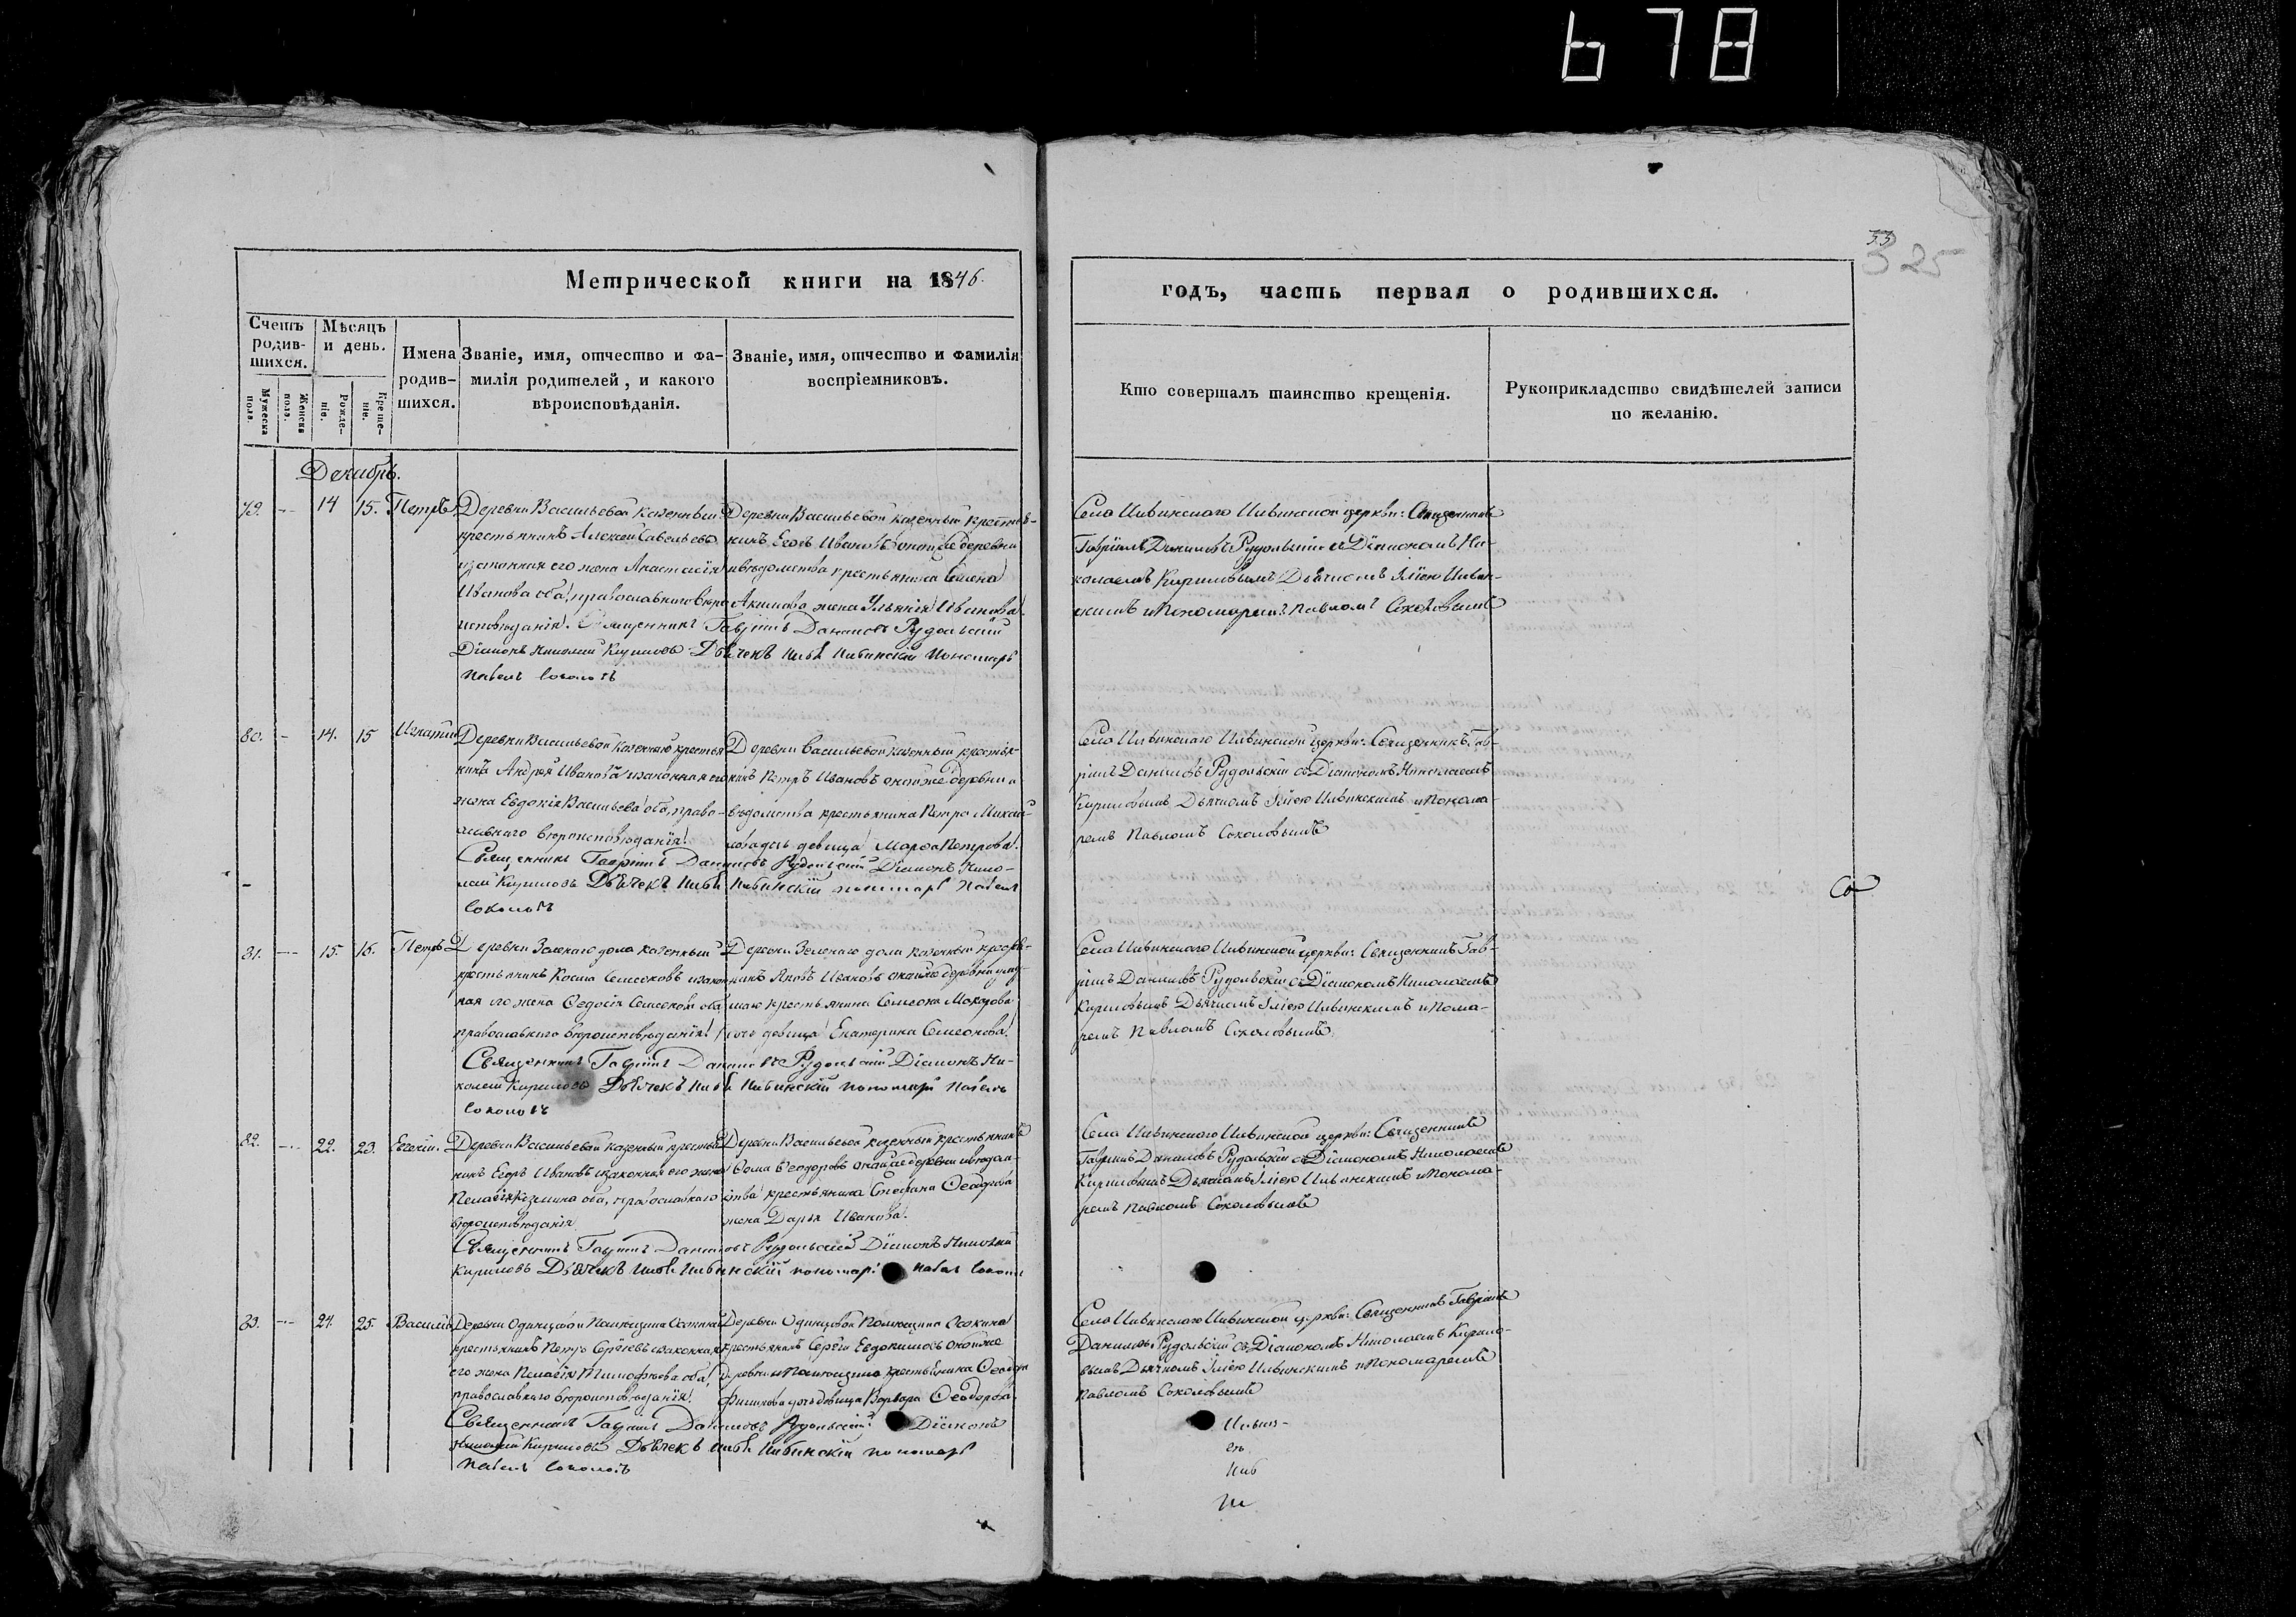 678
33
325
Метрической книги на 1846.
годъ, часть первая о родившихся.
Счетъ родив-шихся.
Мужеска пола.
Женска пола.
Мѣсяцъ и день.
Рожде-ніе.
Креще-ніе.
Имена родив-шихся.
Званіе, имя, отчество и фа-
милія родителей, и какого
вѣроисповѣданія.
Званіе, имя, отчество и фамилія
воспріемниковъ.
Кто совершалъ таинство крещенія.
Рукоприкладство свидѣтелей записи
по желанію.
Декабрь.
79. — 14 15. Петръ
Деревни Васильевой казенный
крестьянинъ Алексей Савельевъ
и законная его жена Анастасія
Иванова оба православнаго вѣро
исповѣданія. Священникъ Гавріилъ Даниловъ Рудольскій
Діаконъ Николай Кириловъ Дьячекъ Ивинскій Пономарь
Павелъ Соколовъ
Деревни Васильевой казенный крестья-
нинъ Егоръ Ивановъ и оной же деревни
и вѣдомства крестьянина Семена
Акимова жена Ульянія Иванова
Села Ивинскаго Ивинской церкви: Священникъ
Гавріилъ Даниловъ Рудольскій съ Діакономъ Ни-
колаемъ Кириловымъ Дьячкомъ Ивин-
скимъ и Пономаремъ Павломъ Соколовымъ
80. — 14. 15 Игнатій
Деревни Васильевой казеннаго крестья
нина Андрея Иванова и законная его
жена Евдокія Васильева оба право-
славнаго вѣроисповѣданія.
Священникъ Гавріилъ Даниловъ Рудольскій Діаконъ Нико-
лай Кириловъ Дьячекъ Ивинскій пономарь Павелъ
Соколовъ
Деревни Васильевой казенный крестья-
нинъ Петръ Ивановъ и оной же деревни и
вѣдомства крестьянина Петра Михай-
лова дочь девица Марѳа Петрова.
Села Ивинскаго Ивинской церкви: Священникъ Гав-
ріилъ Даниловъ Рудольскій съ Діакономъ Николаемъ
Кириловымъ Дьячкомъ Ивинскимъ и Понома-
ремъ Павломъ Соколовымъ
81. — 15. 16. Петръ
Деревни Зеленаго дола казенный
крестьянинъ Косма Семеновъ и закон
ная его жена Ѳедосія Семенова оба
православнаго вѣроисповѣданія.
Священникъ Гавріилъ Даниловъ Рудольскій Діаконъ Ни-
колай Кириловъ Дьячекъ Ивинскій пономарь Павелъ
Соколовъ
Деревни Зеленаго дола казенный крестья-
нинъ Яковъ Ивановъ и оной же деревни
крестьянина Семена Макарова
дочь девица Екатерина Семенова.
Села Ивинскаго Ивинской церкви: Священникъ Гав-
ріилъ Даниловъ Рудольскій съ Діакономъ Николаемъ
Кириловымъ Дьячкомъ Ивинскимъ и Пома-
ремъ Павломъ Соколовымъ
82. — 22. 23. Евгеній.
Деревни Васильевой казенный крестья
нинъ Егоръ Ивановъ и законная его жена
Пелагія оба, православнаго
вѣроисповѣданія
Священникъ Гавріилъ Даниловъ Рудольскій Діаконъ Николай
Кириловъ Дьячекъ Ивинскій пономарь Павелъ Соколовъ
Деревни Васильевой казенный крестьянинъ
Ѳома Ѳеодоровъ и оной же деревни и вѣдом-
ства крестьянина Стефана Ѳеодорова
жена Дарья Иванова.
Села Ивинскаго Ивинской церкви: Священникъ
Гавріилъ Даниловъ Рудольскій съ Діакономъ Николаемъ
Кириловымъ Дьячкомъ Ивинскимъ и Понома-
ремъ Павломъ Соколовымъ
83. — 24. 25. Василій
Деревни Одинцовой
крестьянинъ Петръ Сергѣевъ и законная
его жена Пелагія Тимофѣева оба
православнаго вѣроисповѣданія.
Священникъ Гавріилъ Даниловъ Рудольскій Діаконъ
Николай Кириловъ Дьячекъ Ивинскій пономарь
Павелъ Соколовъ
Деревни Одинцовой
крестьянинъ Сергѣй Евдокимовъ и оной же
деревни крестьянина Ѳеодора
Филипова дочь девица Варвара Ѳеодорова.
Села Ивинскаго Ивинской церкви: Священникъ Гавріилъ
Даниловъ Рудольскій съ Діакономъ Николаемъ Кирило-
вымъ Дьячкомъ Ивинскимъ и Пономаремъ
Павломъ Соколовымъ
Со